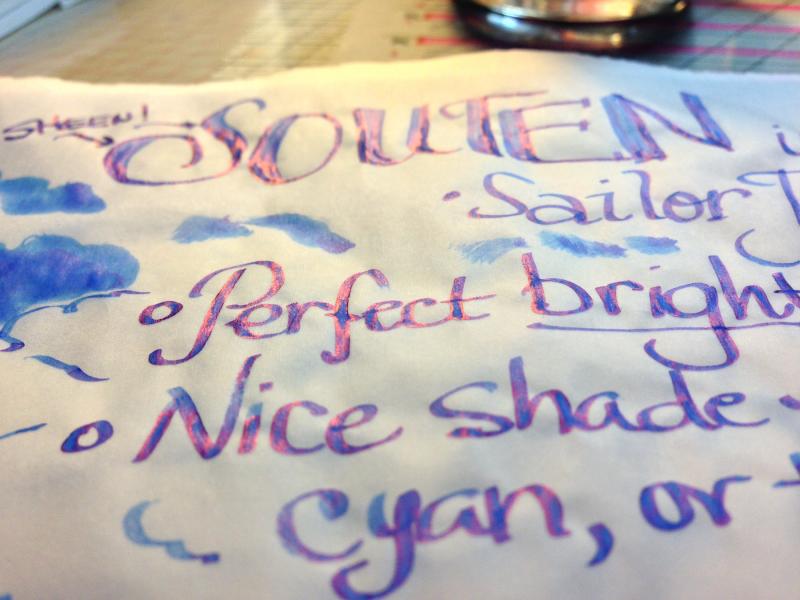 SHEEN! SOUTEN i
Sailor J
Perfect bright
Nice shade
Cyan, or t